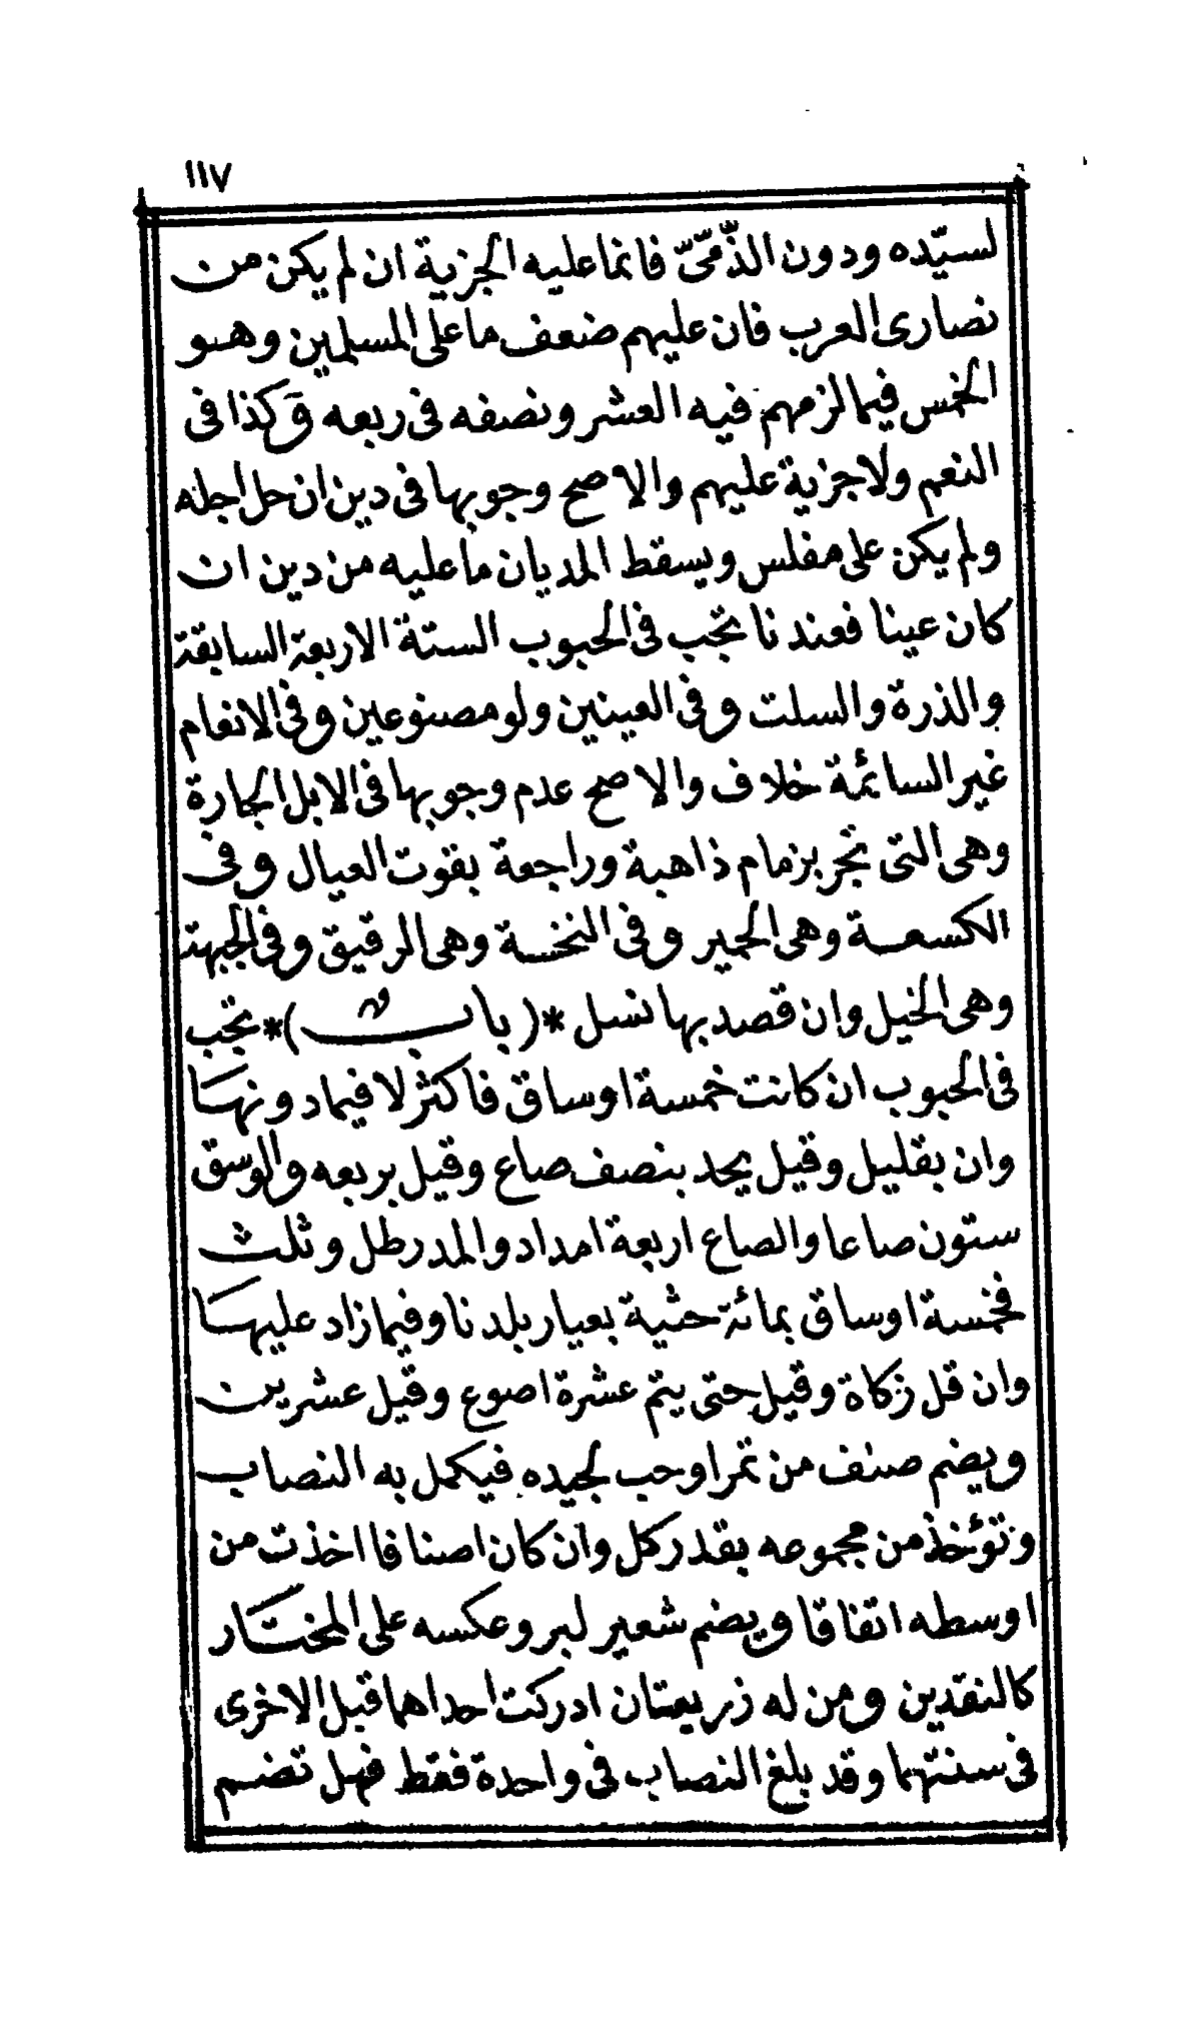 ١١٧
لسيّده ودون الذّمّىّ فانما عليه الجزية ان لم يكن من
نصارى العرب فان عليهم ضعف ما على المسلمين وهو
الخمس فيما لزمهم فيه العشر ونصفه فى ربعه وكذا فى
النعم ولا جزية عليهم والاصح وجوبها فى دين ان حل اجله
ولم يكن على مفلس ويسقط المديان ما عليه من دين ان
كان عينا فعندنا تجب فى الحبوب الستة الاربعة السابقة
والذرة والسلت وفى العينين ولو مصنوعين وفى الانعام
غير السائمة خلاف والاصح عدم وجوبها فى الابل الجارة
وهى التى تجر بزمام ذاهبة وراجعة بقوت العيال وفى
الكسعة وهى الحمير وفى النخسة وهى الرقيق وفى الجبهة
وهى الخيل وان قصد بها نسل *( باب )* تجب
فى الحبوب ان كانت خمسة اوساق فاكثر لا فيما دونها
وان بقليل وقيل يحد بنصف صاع وقيل بربعه والوسق
ستون صاعا والصاع اربعة امداد والمد رطل وثلث
فخمسة اوساق بمائة حثية بعيار بلدنا وفيما زاد عليها
وان قل زكاة وقيل حتى يتم عشرة اصوع وقيل عشرين
ويضم صنف من تمر او حب لجيده فيكمل به النصاب
وتؤخذ من مجموعه بقدر كل وان كان اصنافا اخذت من
اوسطه اتفاقا ويضم شعير لبر وعكسه على المختار
كالنقدين ومن له زريعتان ادركت احداهما قبل الاخرى
فى سنتهما وقد بلغ النصاب فى واحدة فقط فهل تضم